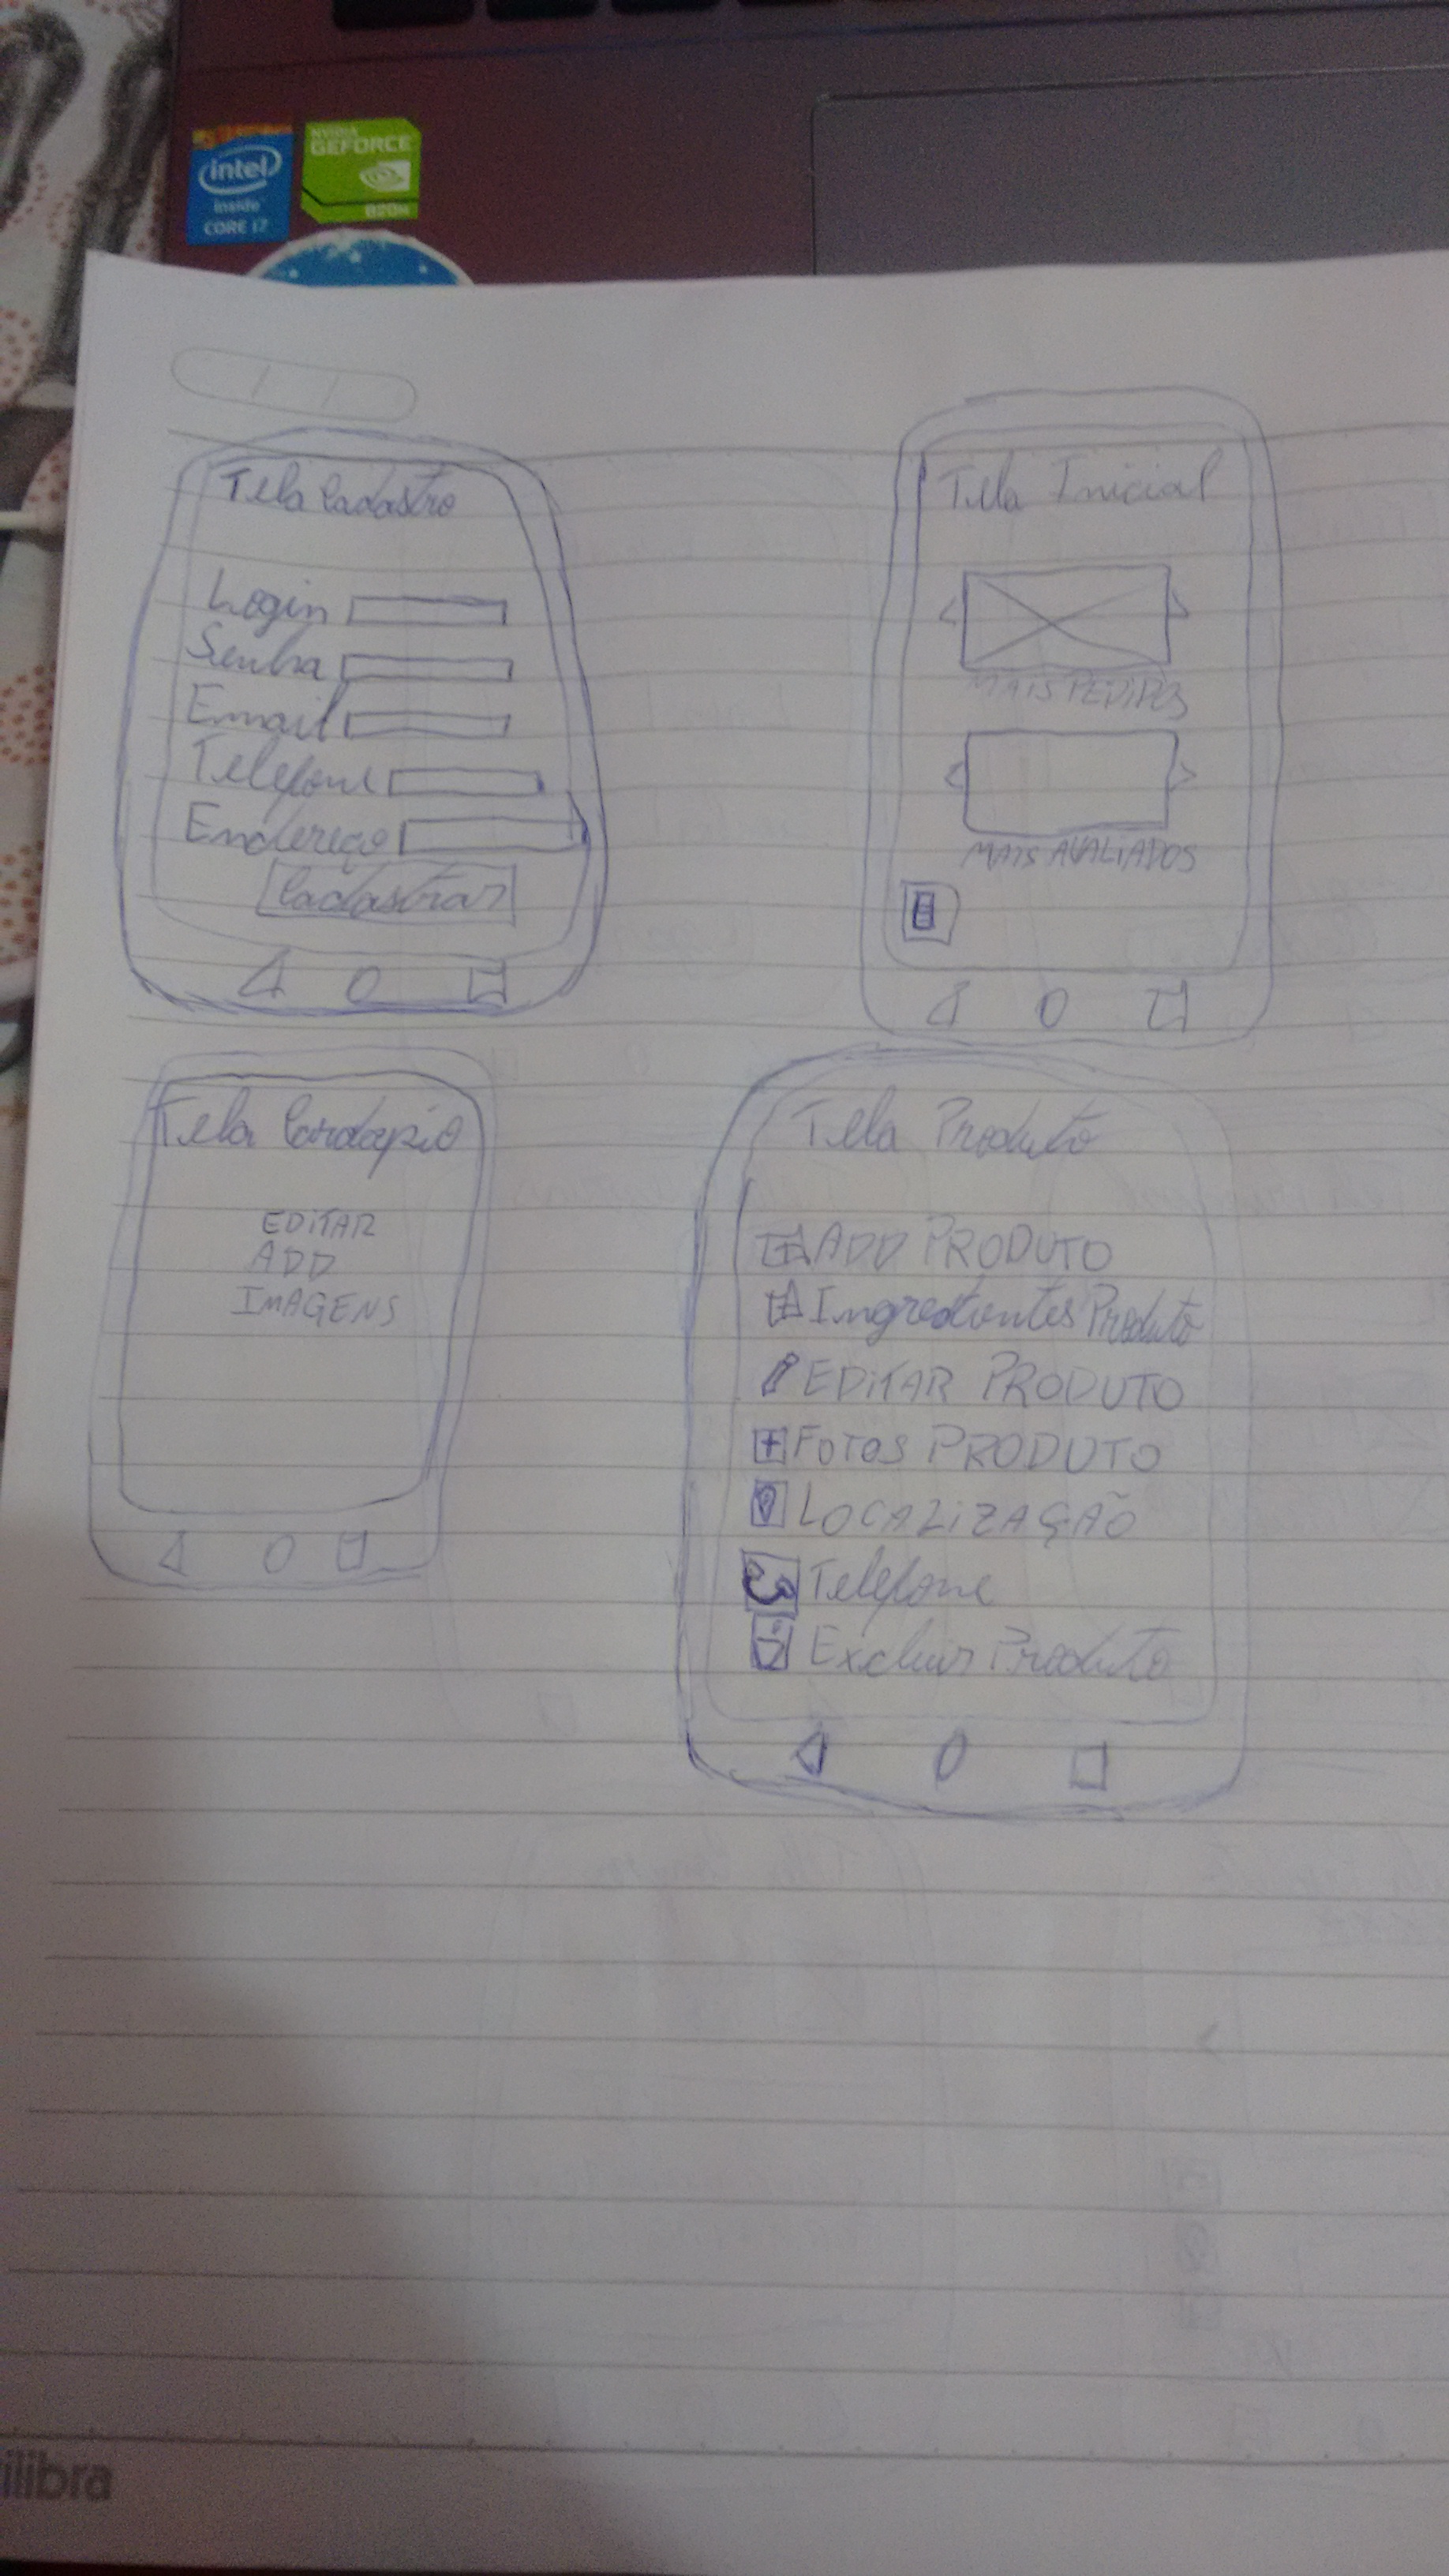 intel
inside
CORE i7
NVIDIA
GEFORCE
820M
Tela Cadastro
Login
Senha
Email
Telefone
Endereço
Cadastrar
Tela Inicial
MAIS PEDIDOS
MAIS AVALIADOS
Tela Cardapio
EDITAR
ADD
IMAGENS
Tela Produto
ADD PRODUTO
Ingredientes Produto
EDITAR PRODUTO
FOTOS PRODUTO
LOCALIZAÇÃO
Telefone
Excluir Produto
ilibra